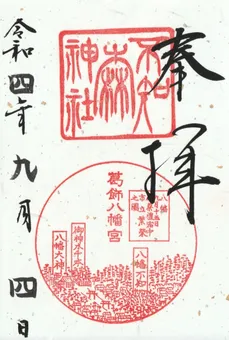 奉拝
不知
森
神社
令和四年九月四日
葛飾八幡宮
八幡
御神木千本
八幡大神
八幡不知